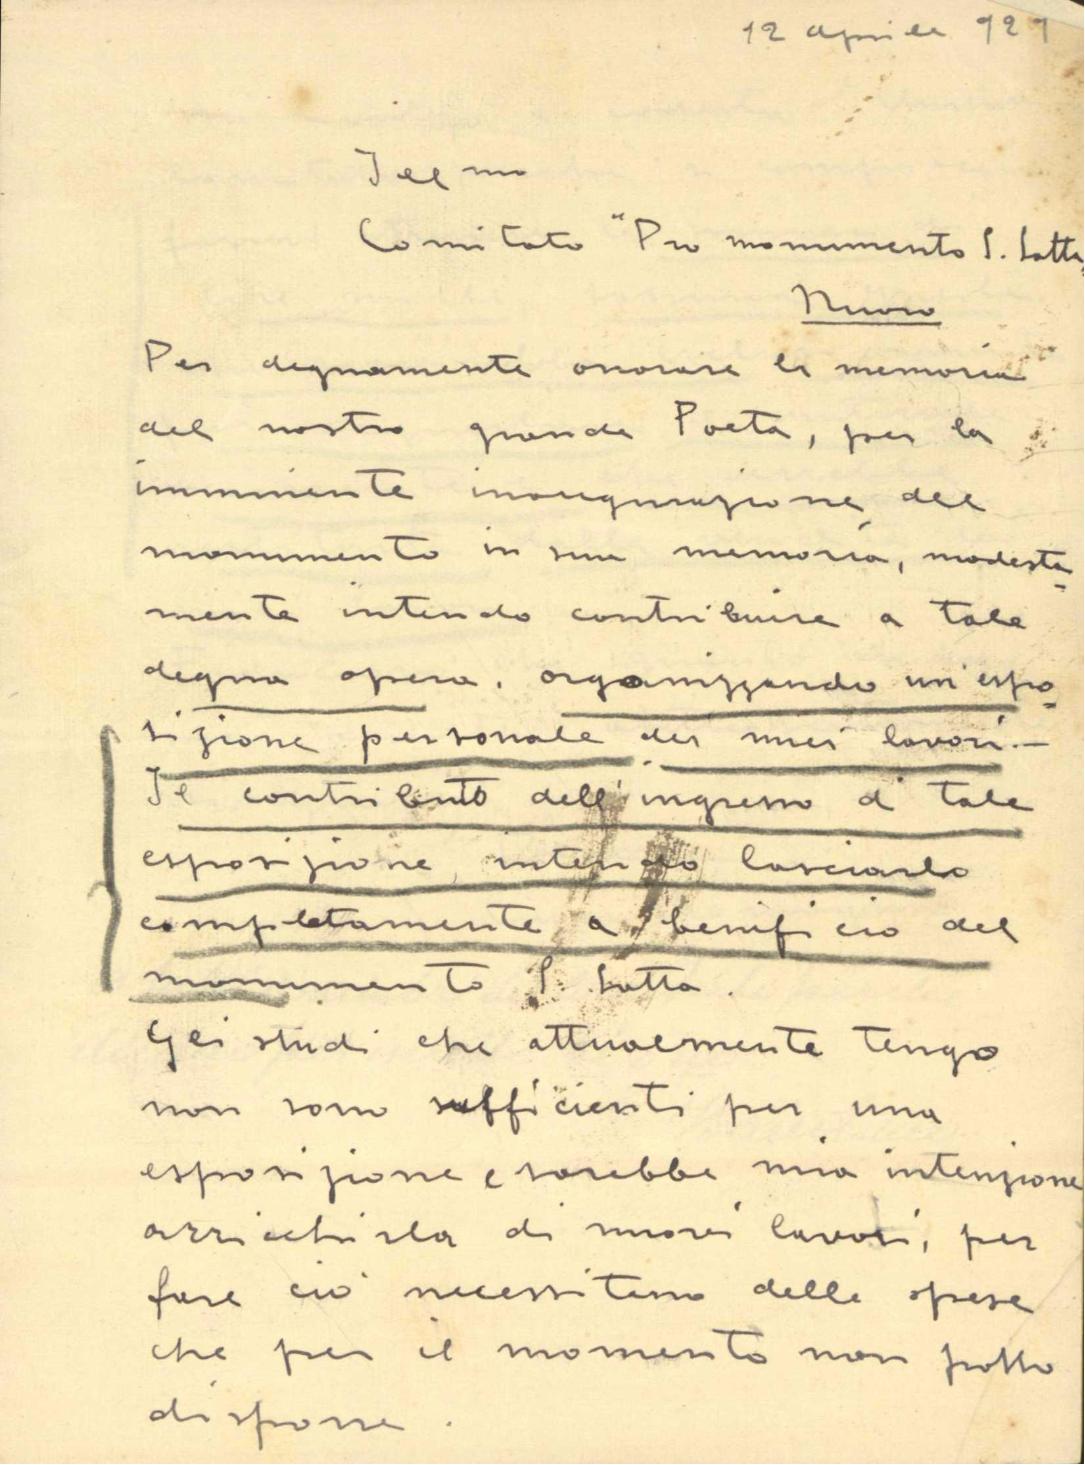 12 aprile 921
Ill mo
Comitato "Pro monumento S. Satta"
Nuoro
Per degnamente onorare la memoria
del nostro grande Poeta, per la
imminente inaugurazione del
monumento in sua memoria, modesta-
mente intendo contribuire a tale
degna opera. organizzando un'espo-
sizione personale dei miei lavori.—
Il contributo dell'ingresso di tale
esposizione, intendo lasciarlo
completamente a benificio del
monumento S. Satta.
Gli studi che attualmente tengo
non sono sufficienti per una
esposizione e sarebbe mia intenzione
arricchirla di nuovi lavori, per
fare ciò necessitano delle spese
che per il momento non posso
disporre.